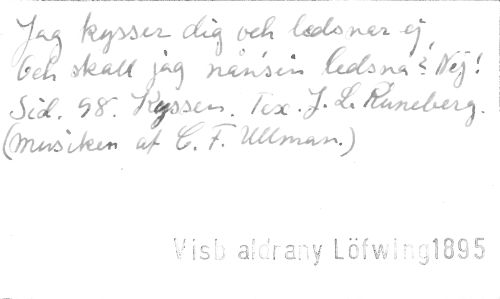 Jag kysser dig och ledsnar ej,
Och skall jag nånsin ledsna? Nej!
Sid. 98. Kyssen. Tex. J. L. Runeberg.
(Musiken af C. F. Ullman.)
Visb aldrany Löfwing1895